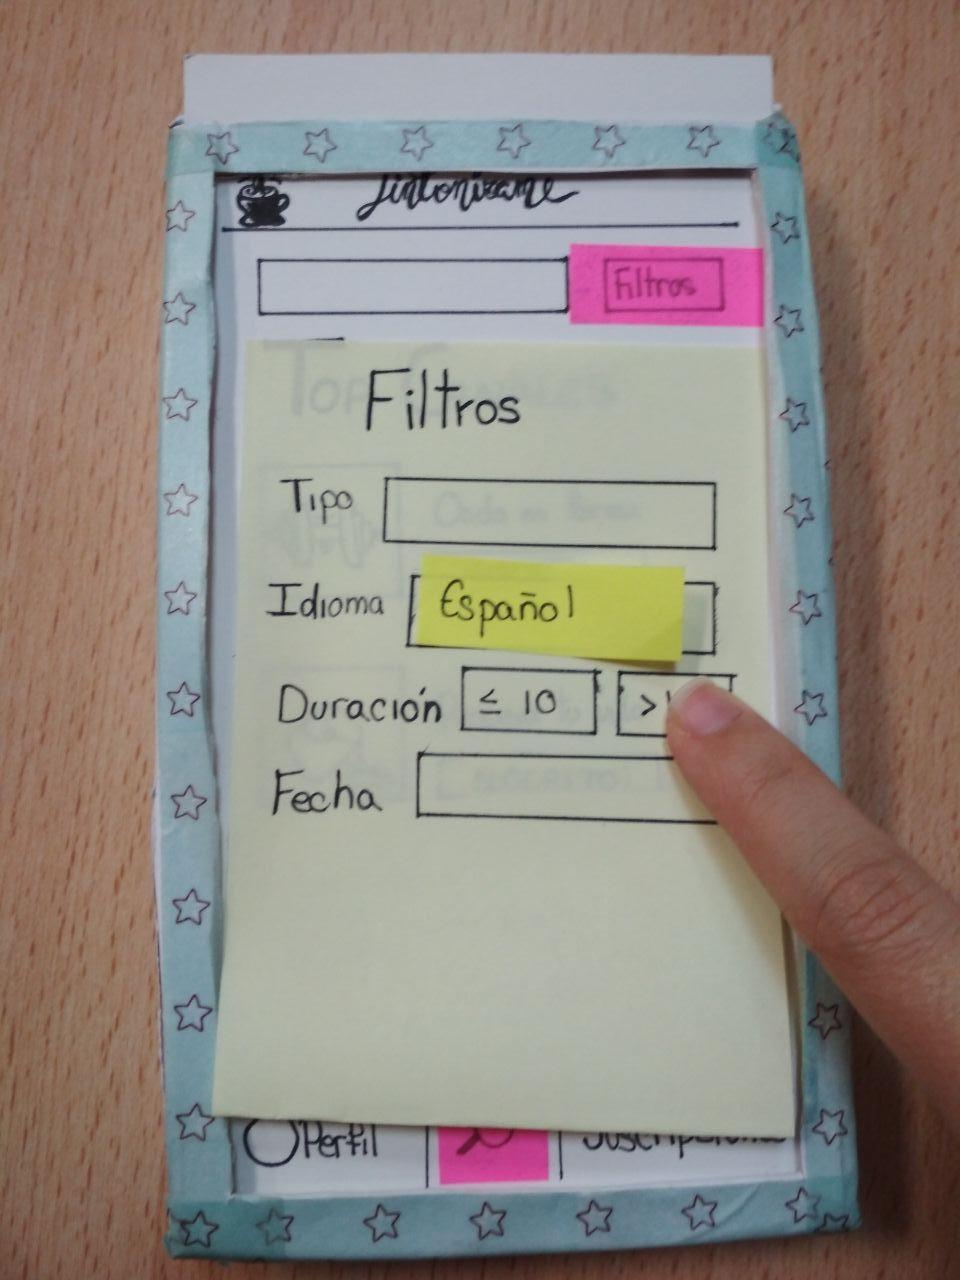 Sintonízame
Filtros
Filtros
Tipo
Idioma Español
Duración ≤ 10 >
Fecha
Perfil